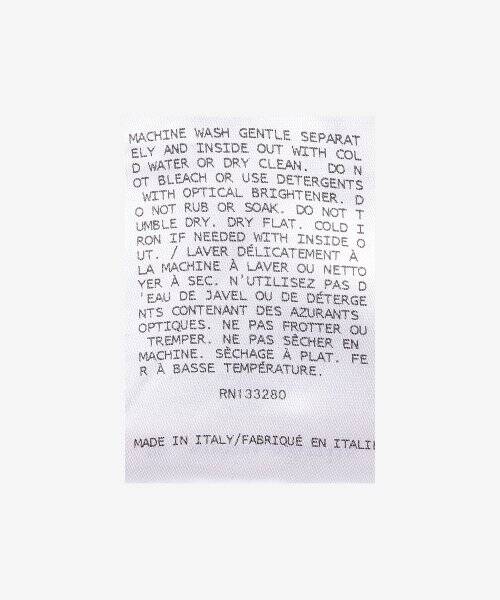 MACHINE WASH GENTLE SEPARAT
ELY AND INSIDE OUT WITH COL
D WATER OR DRY CLEAN. DO N
OT BLEACH OR USE DETERGENTS
WITH OPTICAL BRIGHTENER. D
O NOT RUB OR SOAK. DO NOT T
UMBLE DRY. DRY FLAT. COLD I
RON IF NEEDED WITH INSIDE O
UT. / LAVER DÉLICATEMENT À
LA MACHINE À LAVER OU NETTO
YER À SEC. N'UTILISEZ PAS D
'EAU DE JAVEL OU DE DÉTERGE
NTS CONTENANT DES AZURANTS
OPTIQUES. NE PAS FROTTER OU
TREMPER. NE PAS SÈCHER EN
MACHINE. SÈCHAGE À PLAT. FE
R À BASSE TEMPÉRATURE.
RN133280
MADE IN ITALY/FABRIQUÉ EN ITALIE